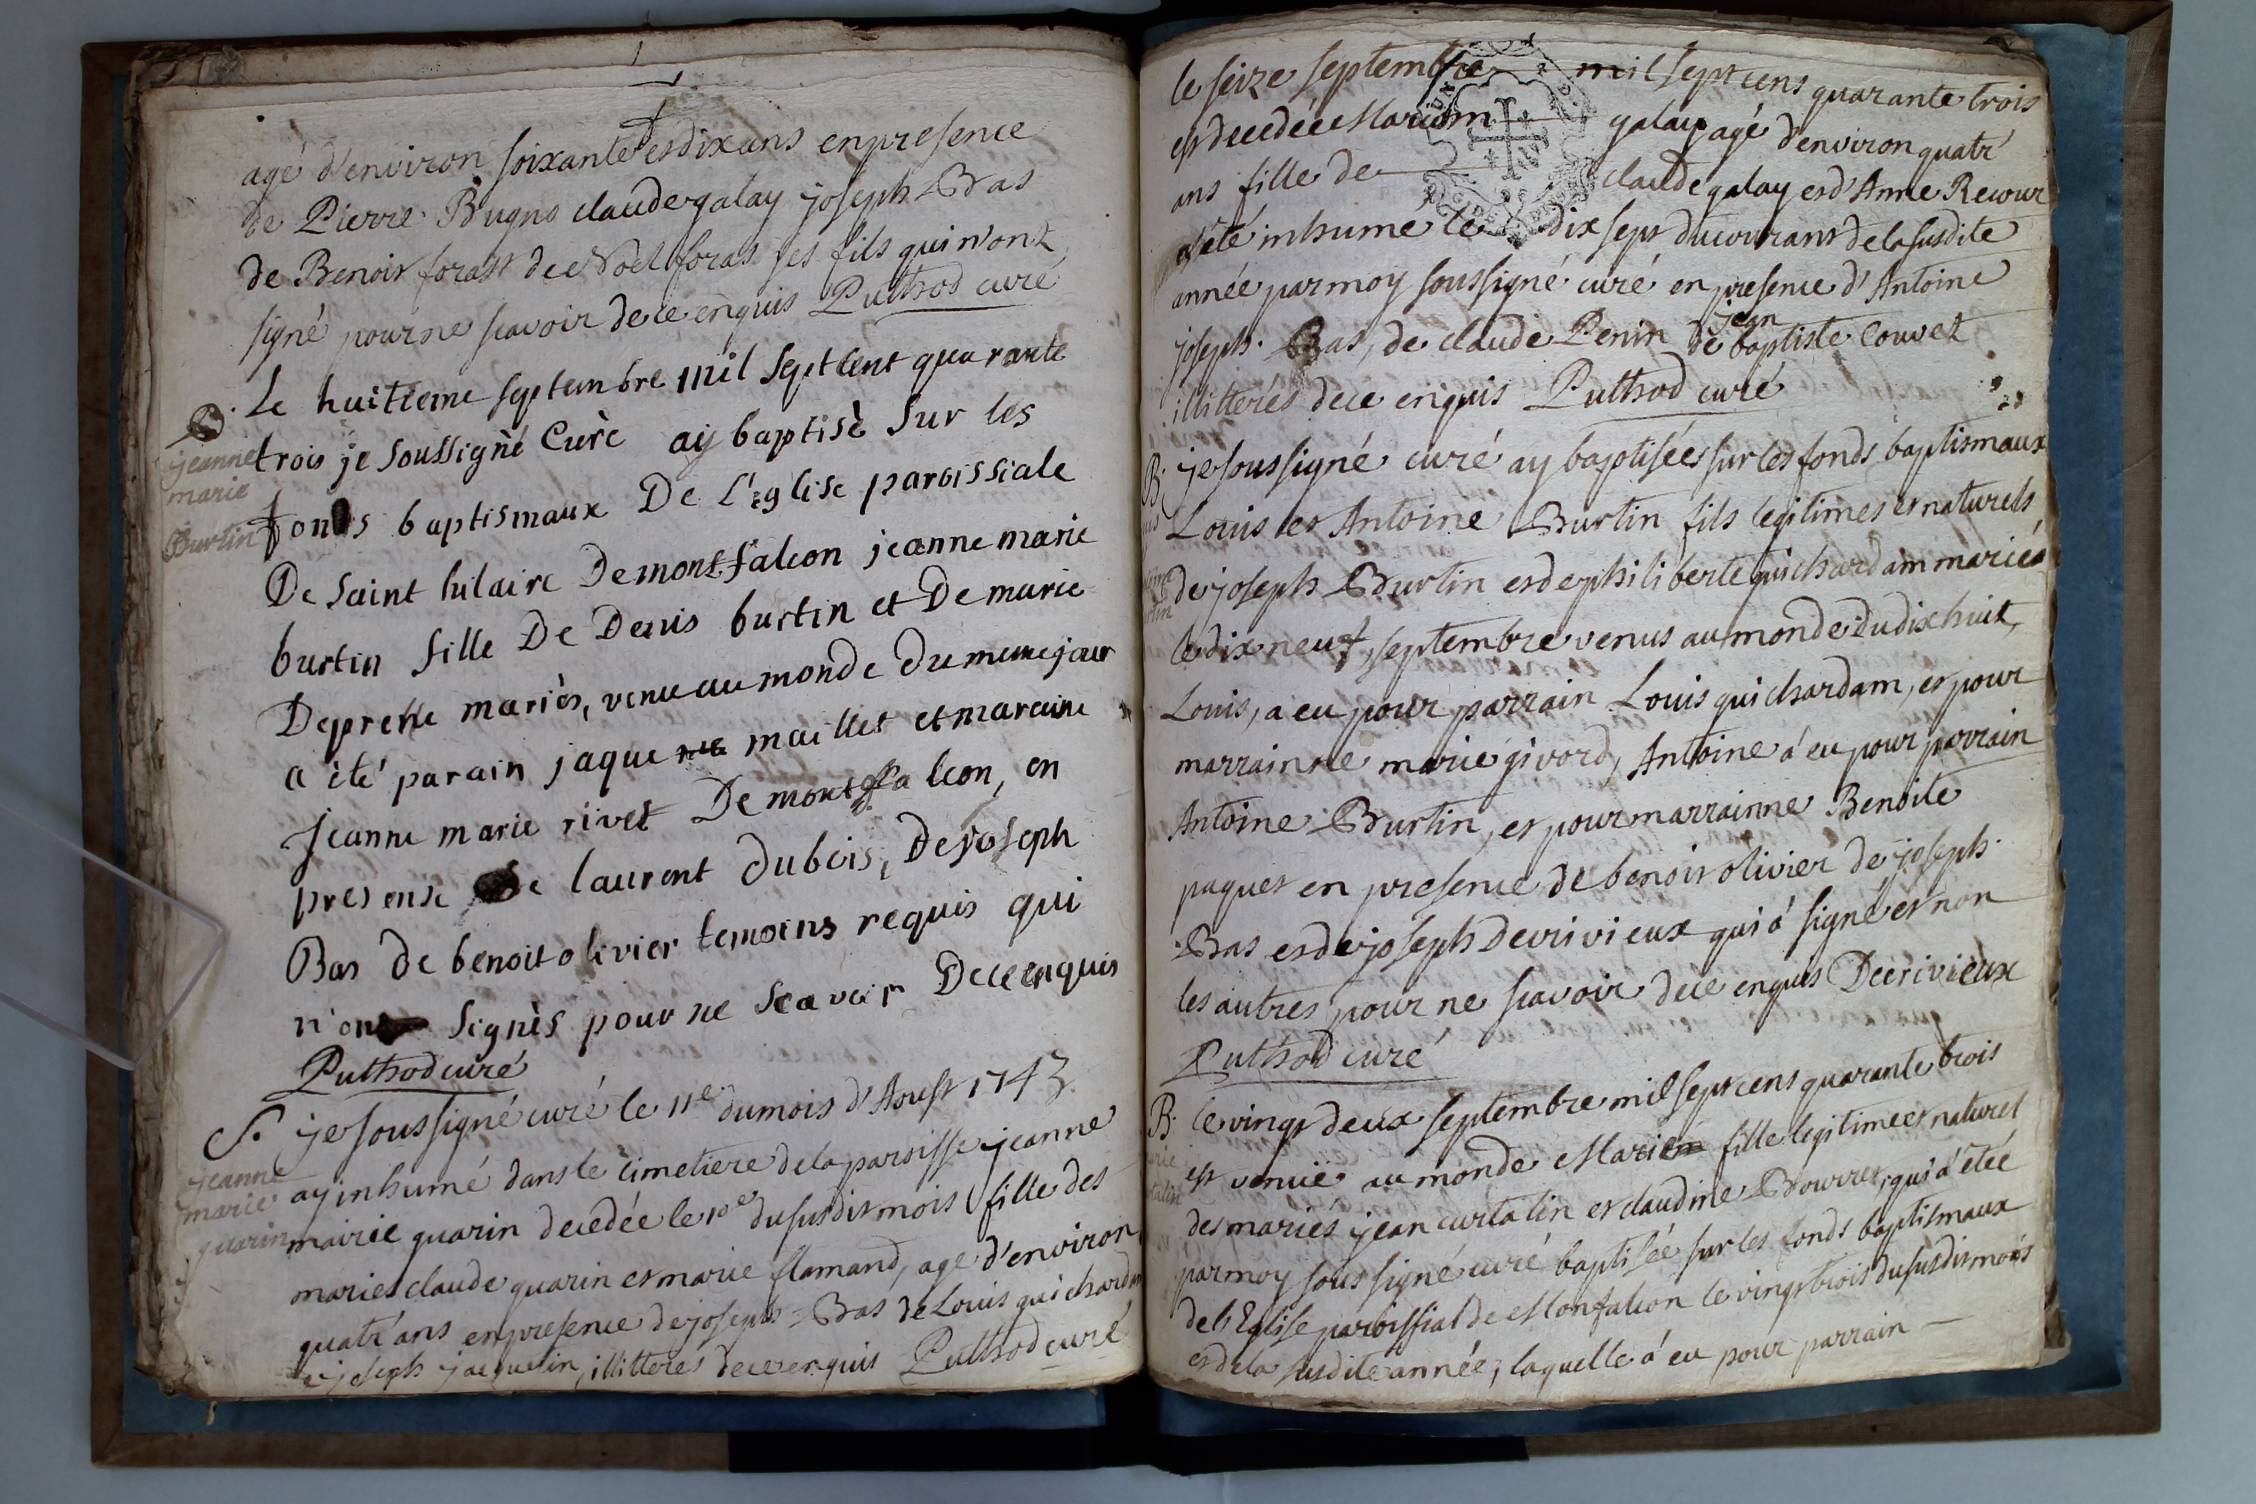 agé d'environ soixante et dix ans en presence
de Pierre Bugno claude galay joseph Bas
de Benoit forast de Noel foras ses fils qui n'ont
signé pour ne scavoir de ce enquis Puthod curé
Le huitieme septembre mil sept cent quarante
trois je soussigné Curè ay baptisè sur les
jeanne
marie
Burtin
fonds baptismaux De L'eglise paroissiale
De saint hilaire De montfalcon jeanne marie
burtin fille De Denis burtin et De marie
Deprelle mariès, venu au monde du meme jour
a èté parain jaque maillet et maraine
jeanne marie rivet De montfalcon, en
presense De laurent dubois, De joseph
Bas de benoit olivier temoins requis qui
n'ont signès pour ne scavoir De ce enquis
Puthod curé
S. je soussigné curé le 11e du mois d'Aoust 1743
jeanne
marie
guarin
ay inhumé dans le cimetiere de la paroisse jeanne
mairie guarin decedée le 10e du susdit mois fille des
mariés claude guarin et marie flamand, age d'environ
quatr'ans en presence de joseph Bas de Louis quichardam
joseph jacquelin, illitterés de ce enquis Puthod curé
le seize septembre mil sept cens quarante trois
est decedée Marie galay agé d'environ quatr'
ans fille de claude galay et d'Anne Recour
a été inhume le dix sept du courant de la susdite
année par moy soussigné curé en presence d'Antoine
joseph Bas, de claude Penin de jean baptiste Couvet
illitterés de ce enquis Puthod curé
B. je soussigné curé ay baptisées sur les fonds baptismaux
Louis et Antoine Burtin fils legitimes et naturels
de joseph Burtin et de philiberte quichardam mariés
le dix neuf septembre venus au monde du dix huit,
Louis, a eu pour parrain Louis quichardam, et pour
marrainne marie givord, Antoine á eu pour parrain
Antoine Burtin, et pour marrainne Benoite
paquet en presence de benoit olivier de joseph
Bas et de joseph Decrivieux qui á signé et non
les autres pour ne scavoir de ce enquis Decrivieux
Puthod curé
B. le vingt deux septembre mil sept cens quarante trois
est venuë au monde Marie fille legitime et naturel
des mariés jean curtalin et claudine Bourret, qui á étée
par moy soussigné curé baptisée sur les fonds baptismaux
de l'Eglise paroissial de Monfalcon le vingt trois du susdit mois
et de la susdite année; laquelle á eu pour parrain